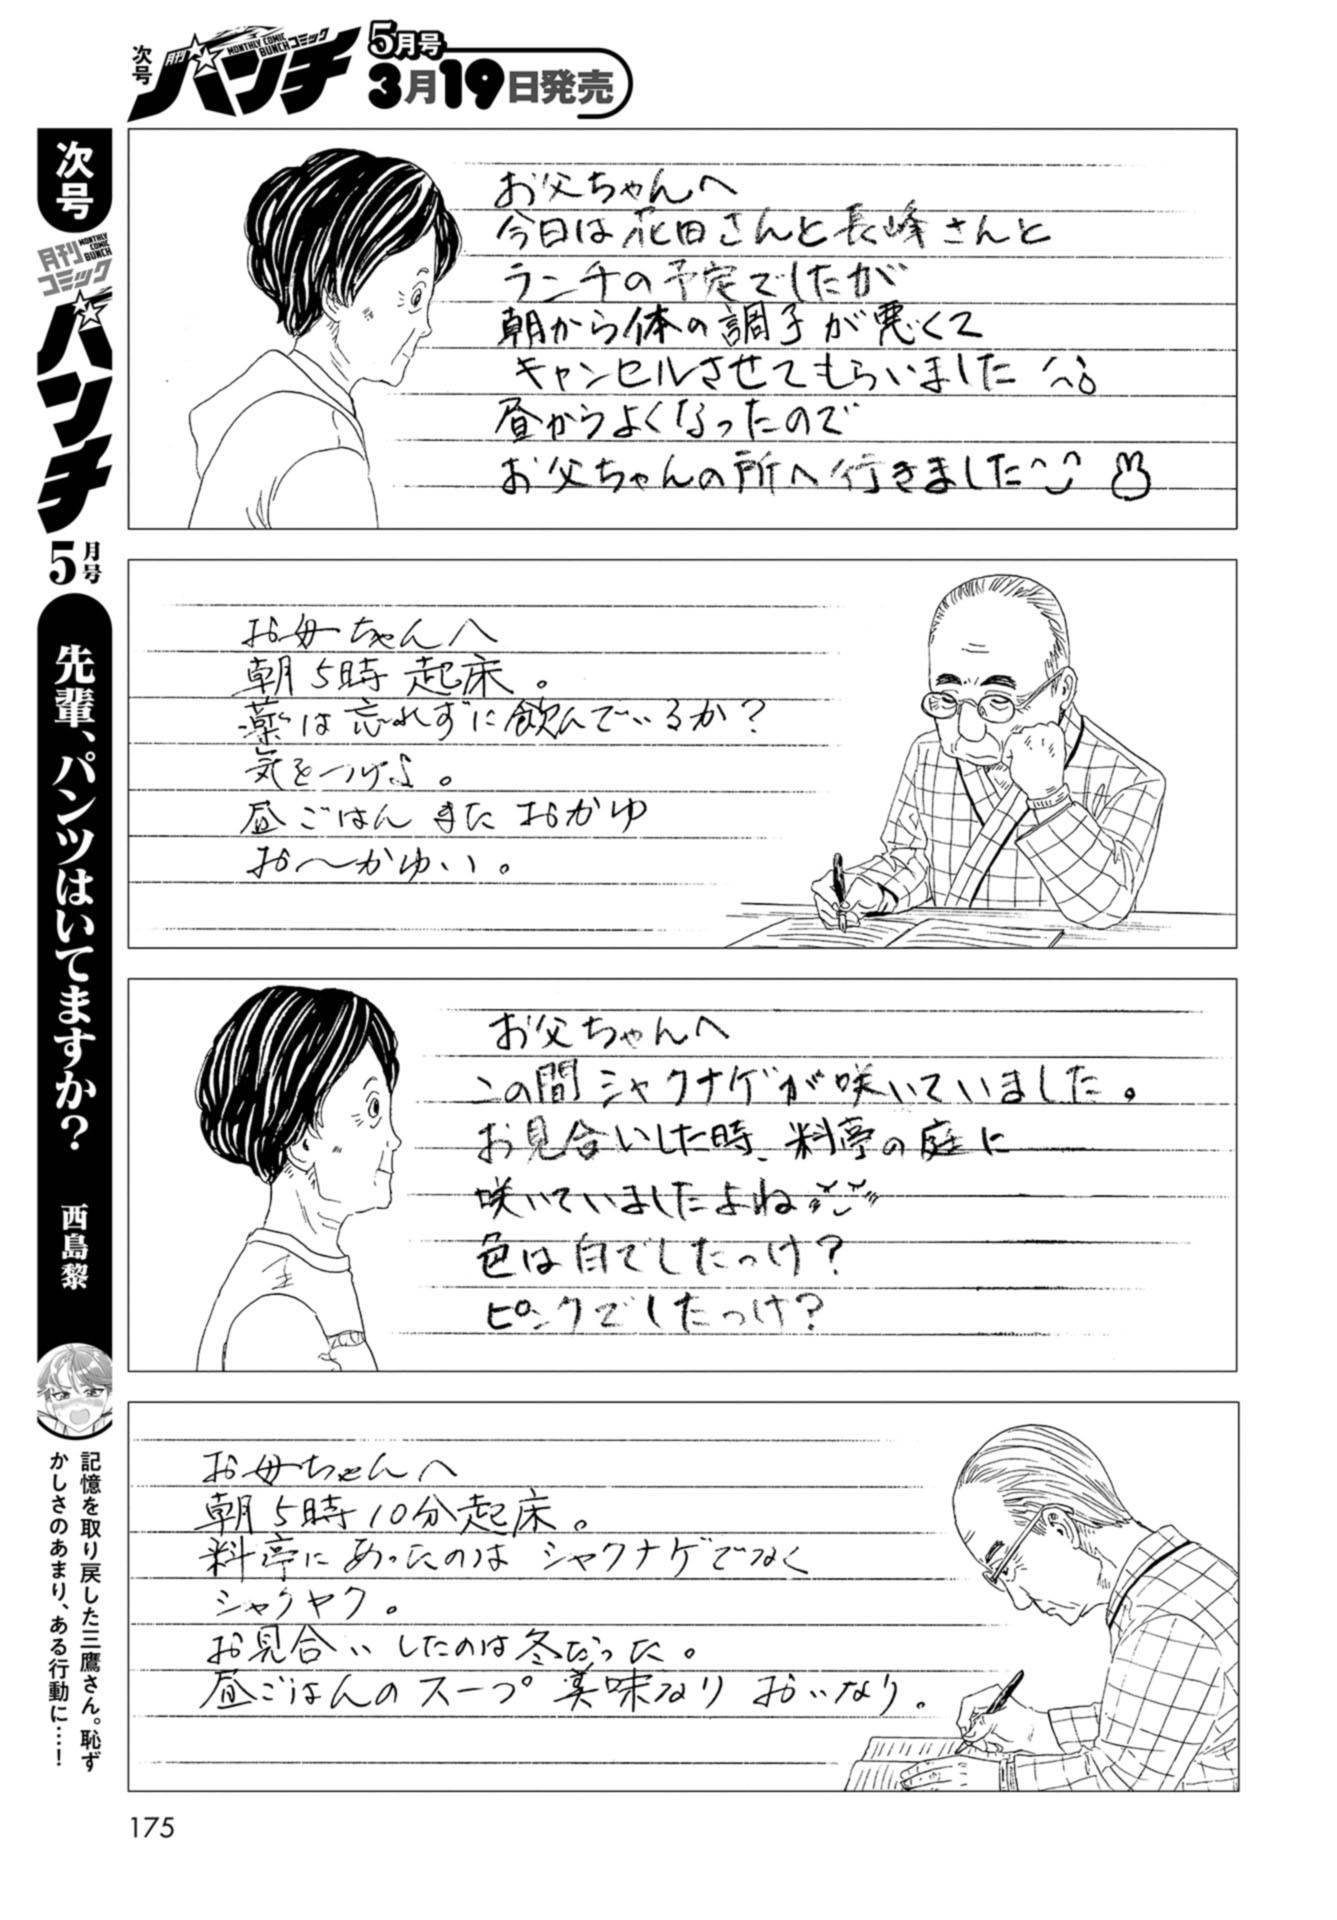 次号
月刊
コミック
MONTHLY COMIC
BUNCH
バンチ
5月号
3月19日発売
お父ちゃんへ
今日は花田さんと長峰さんと
ランチの予定でしたが
朝から体の調子が悪くて
キャンセルさせてもらいました
昼からよくなったので
お父ちゃんの所へ行きました
お母ちゃんへ
朝5時起床。
薬は忘れずに飲んでいるか?
気をつけよ。
昼ごはん またおかゆ
お〜かゆいい。
お父ちゃんへ
この間シャクナゲが咲いていました。
お見合いした時、料亭の庭に
咲いていましたよね
色は白でしたっけ?
ピンクでしたっけ?
お母ちゃんへ
朝5時10分起床。
料亭にあったのはシャクナゲでなく
シャクヤク。
お見合いしたのは冬だった。
昼ごはんのスープ美味なり おいなり。
次号
月刊
コミック
MONTHLY
COMIC
BUNCH
バンチ
5月号
先輩、パンツはいてますか?
西島黎
記憶を取り戻した三鷹さん。恥ず
かしさのあまり、ある行動に…!
175